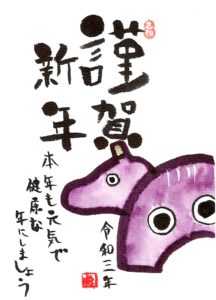 謹賀
新年
本年も元気で
健康な
年にしましょう
令和三年